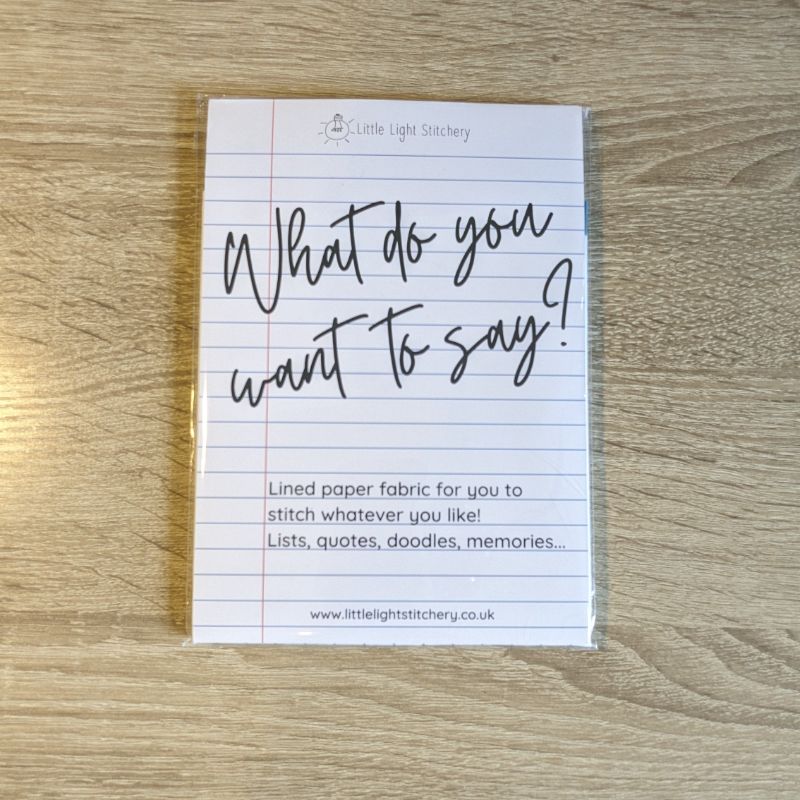 Little Light Stitchery
What do you
want to say?
Lined paper fabric for you to
stitch whatever you like!
Lists, quotes, doodles, memories...
www.littlelightstitchery.co.uk